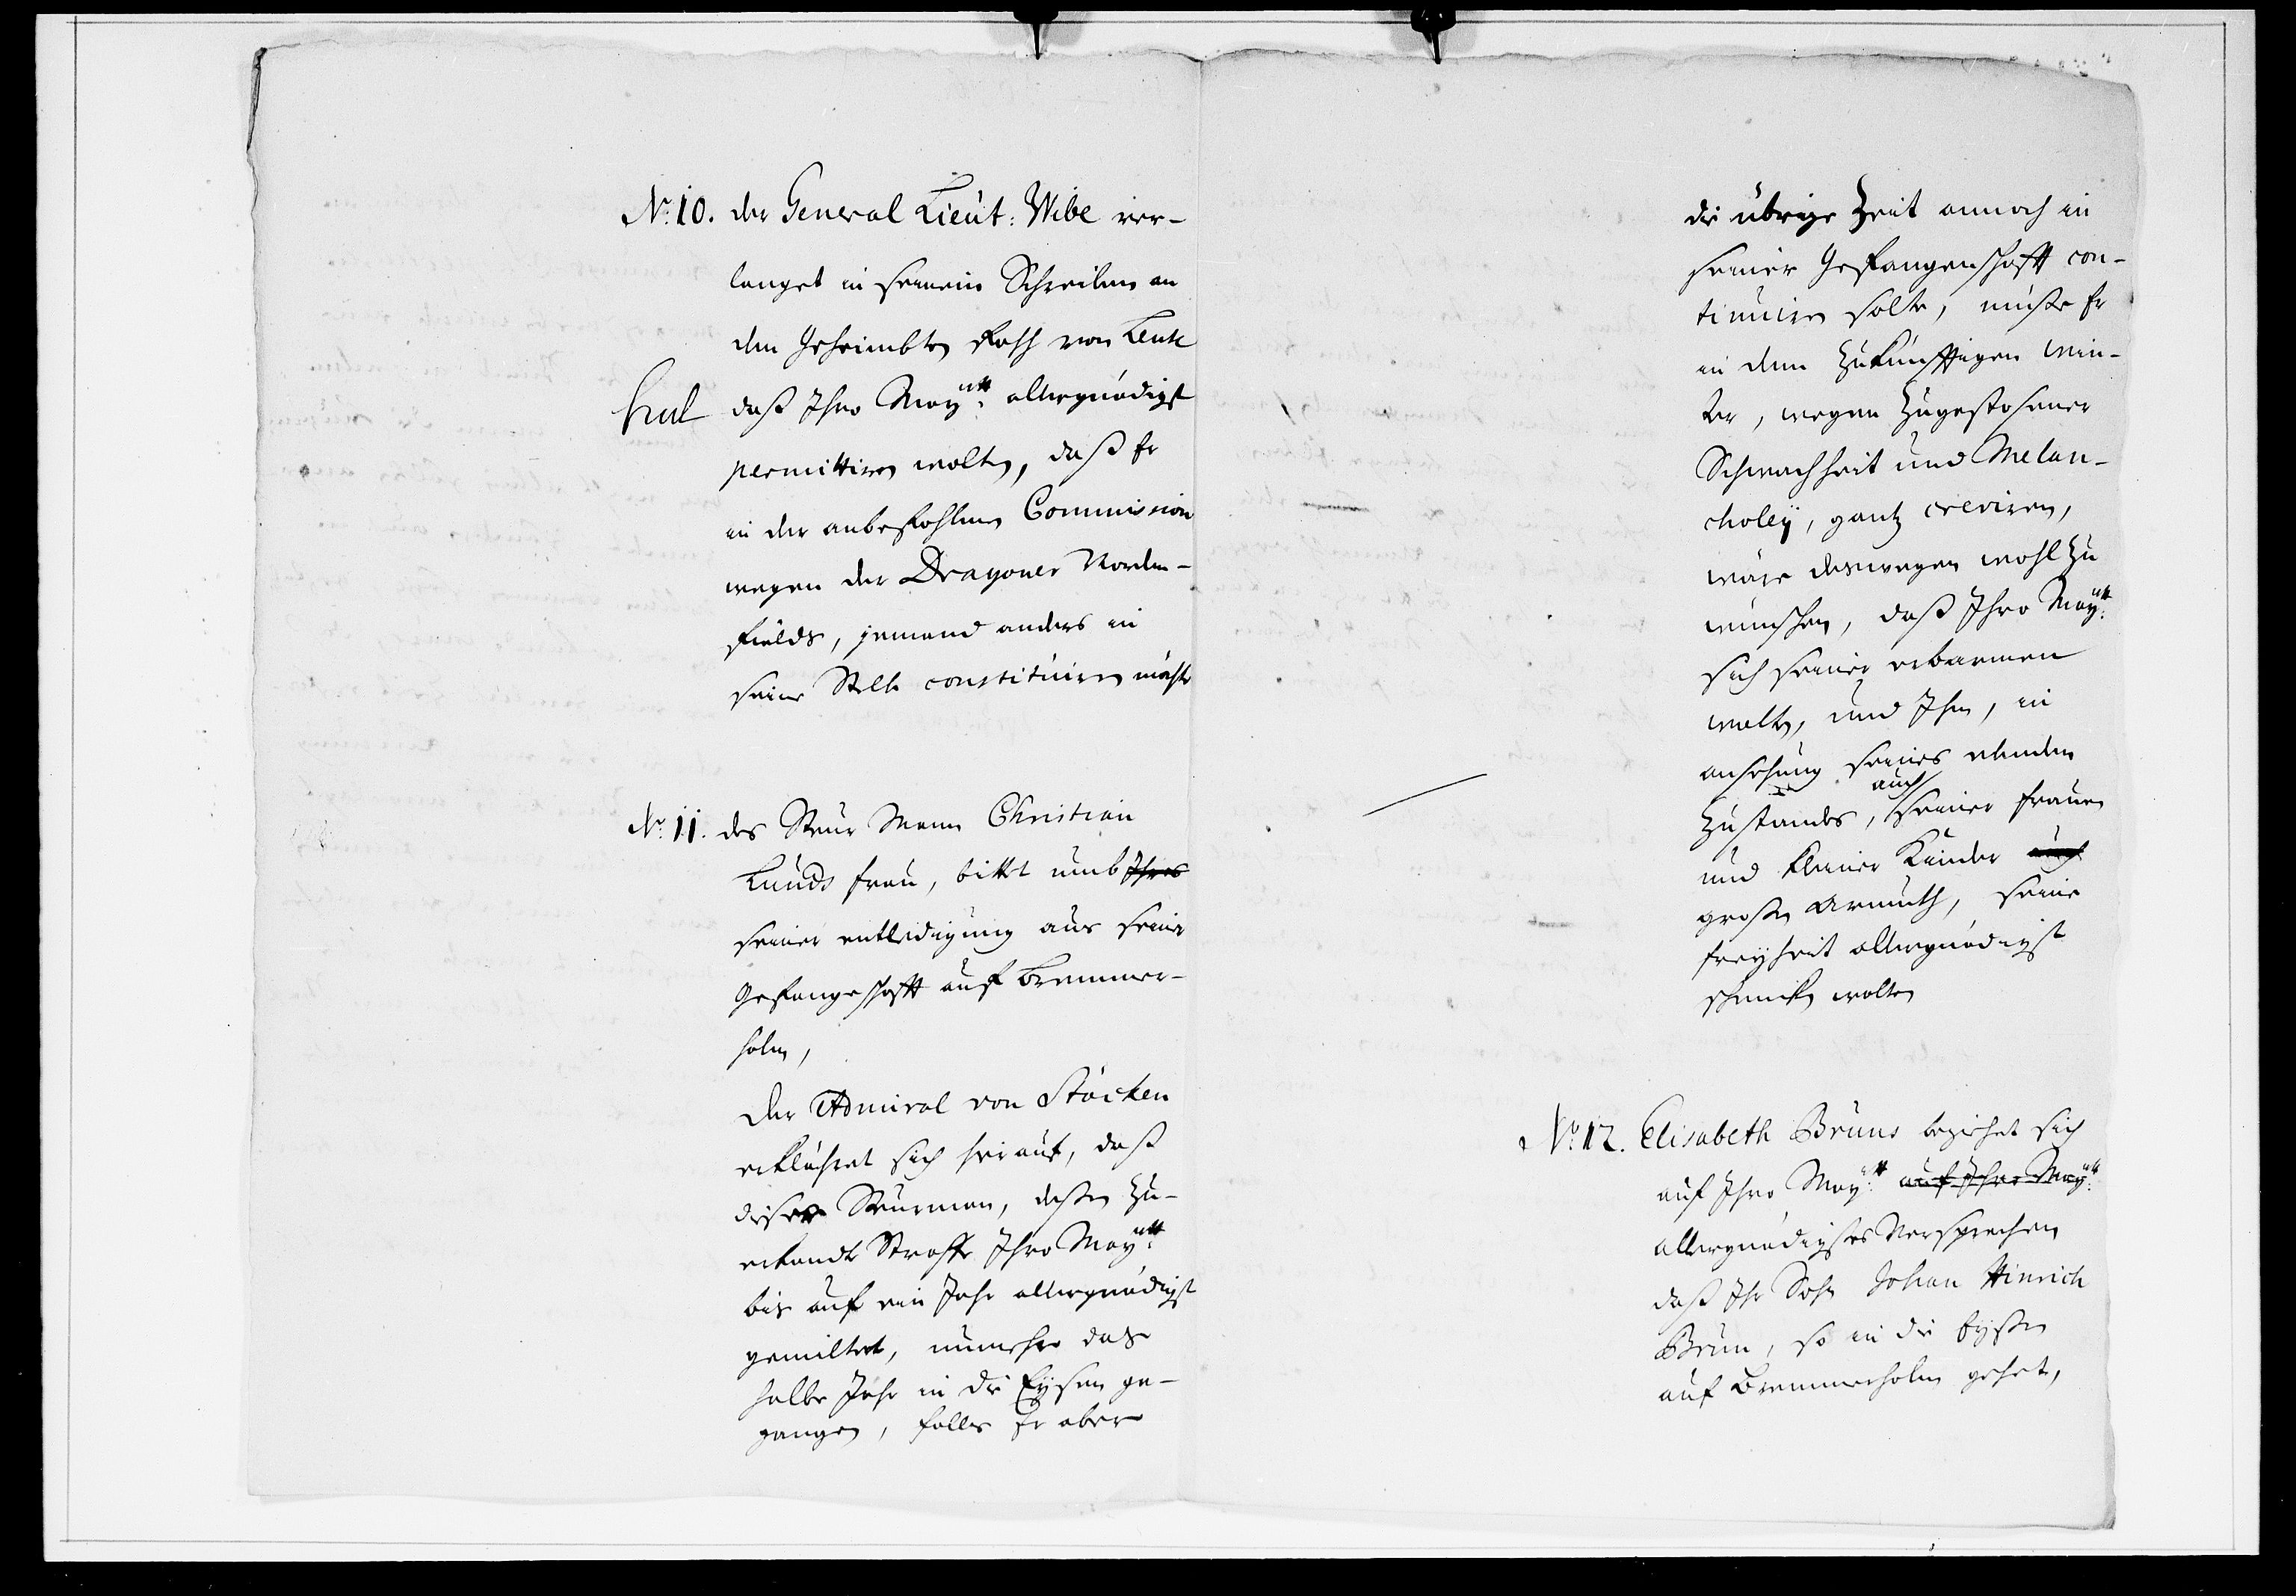 No: 10. der General Lieut: Wibe ver-
langet in seinem Schreiben an
den Geheimbten Rath von Lente
daß Ihro Maytt: allergnädigst
permittiren wolten, daß Er
in der anbefohlenen Commission
wegen der Dragoner Norden-
fields, jemand anders in
seine Stelle constituiren möchte
No: 11. des Steur Mann Christian
Lunds frau, bittet umb Ihres
seiner entledigung aus seiner
Gefangeschafft auf Bremmer-
holm,
Der Admiral von Stöcken
erklähret sich hierauf, daß
dieser Steurman, deßen zu-
erkandte Straffe Ihro Maytt:
bis auf ein Jahr allergnädigst
gemiltert, nunmehr das
halbe Jahr in die Eysen ge-
gangen, falls Er aber
die übrige Zeit annoch in
seiner Gefangenschafft con-
tinuiren solte, müste Er
in dem zukünfftigen Win-
ter, wegen zugestoßener
Schwachheit und Melan-
choley, gantz creviren,
wäre deswegen wohl zu
wünschen, daß Ihro Maytt:
sich seiner erbarmen
wolten, und Ihm, in
ansehung seines elenden
Zustandes, auch seiner frauen
und kleiner Kinder auch
großen Armuth, seine
freyheit allergnädigst
schencken wolten
No: 12. Elisabeth Bruns beziehet sich
auf Ihro Maytt: auf Ihro Maytt:
allergnädigstes Versprechen
daß Ihr Sohn Johan Hinrich
Brun, so in die Eysen
auf Bremmerholm gehet,